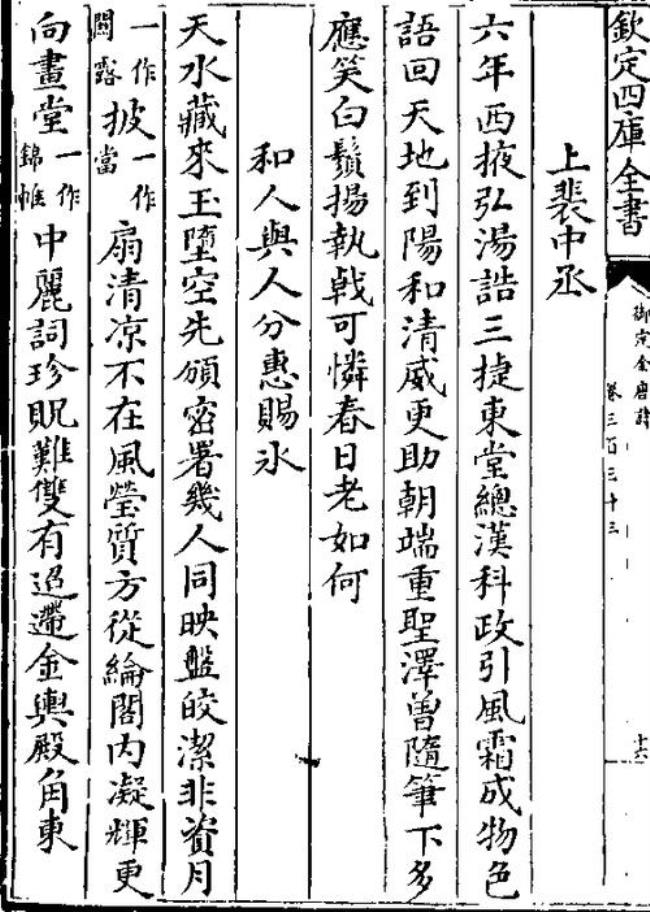 欽定四庫全書
御定全唐詩
卷三百三十三
十六
上裴中丞
六年西掖弘湯誥三捷東堂總漢科政引風霜成物色
語回天地到陽和清威更助朝端重聖澤曽隨筆下多
應笑白鬚揚執戟可憐春日老如何
和人與人分惠賜氷
天水藏來玉墮空先頒密署幾人同映盤皎潔非資月
一作
闗露
披
一作
當
扇清凉不在風瑩質方從綸閣内凝輝更
向畫堂
一作
錦帷
中麗詞珍貺難雙有迢遰金輿殿角東